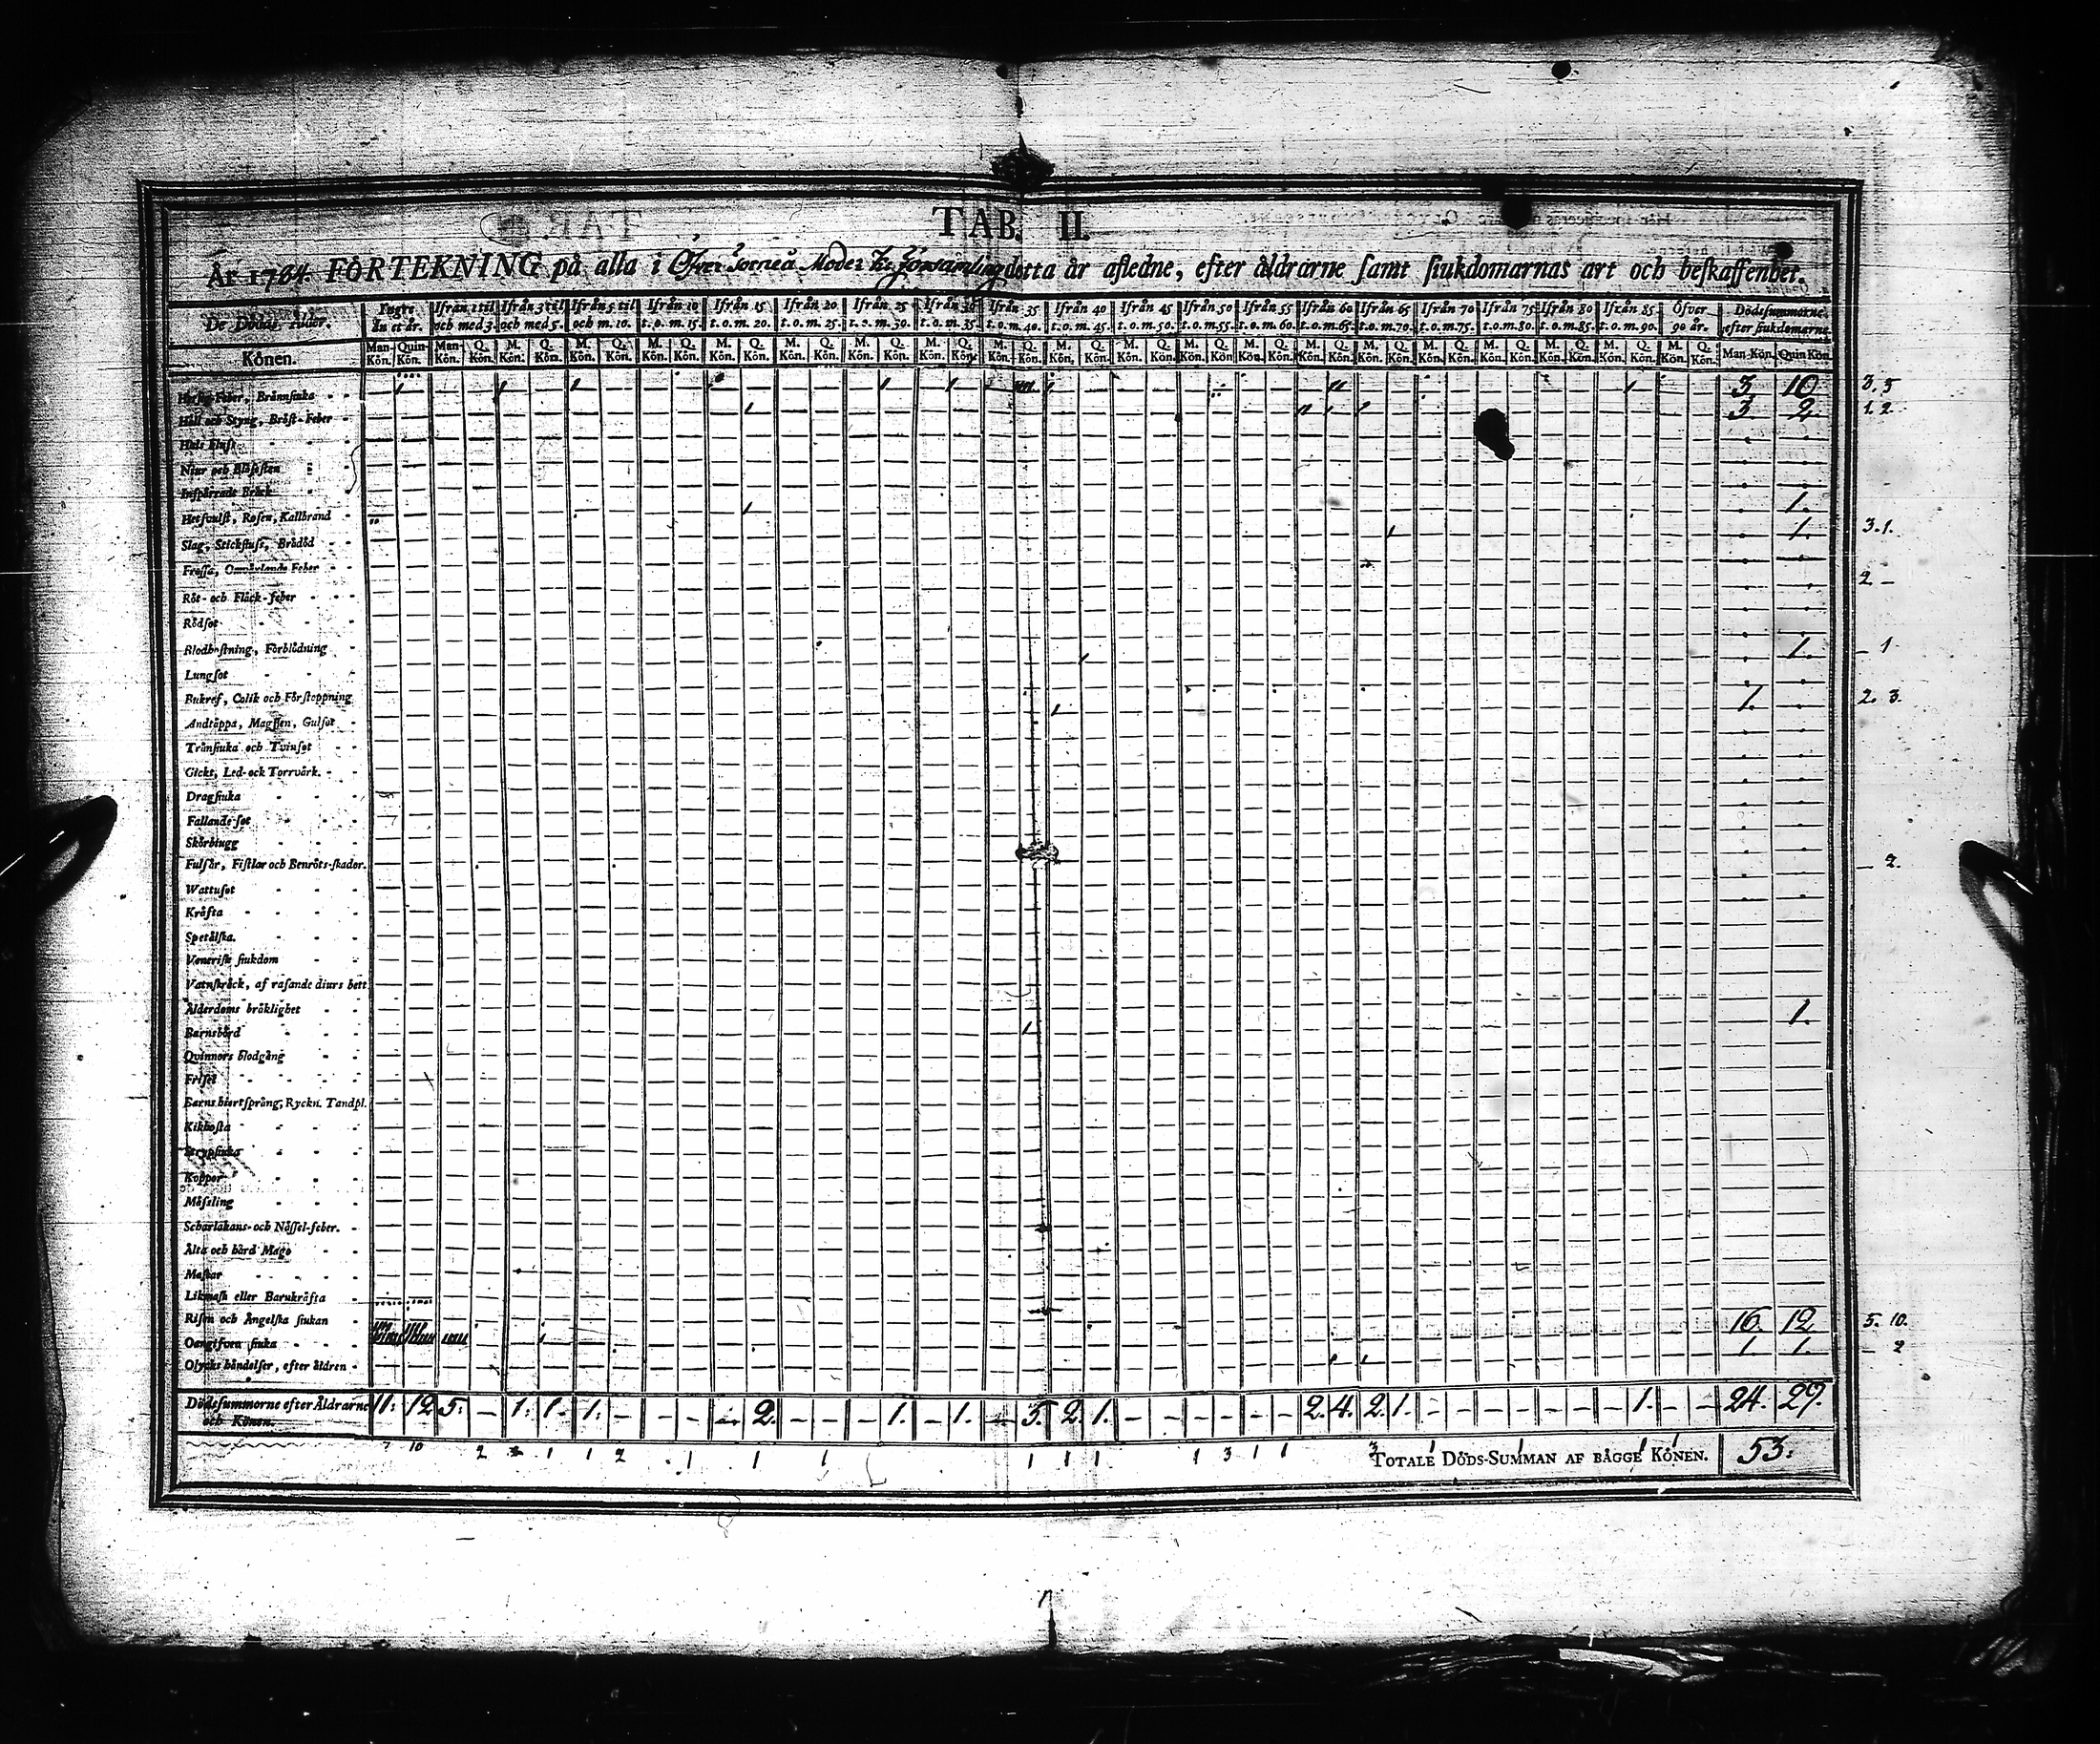 TAB. II.
År 1784. FÖRTEKNING på alla i Öfver Torneå Moder K. Församling detta år afledne, efter åldrarne samt siukdomarnas art och beskaffenhet.
De Dödas Ålder. Yngre än et år. Ifrån 1 til och med 3. Ifrån 3 til och med 5. Ifrån 5 til och m. 10. Ifrån 10 t.o.m. 15. Ifrån 15 t.o.m. 20. Ifrån 20 t.o.m. 25. Ifrån 25 t.o.m. 30. Ifrån 30 t.o.m. 35. Ifrån 35 t.o.m. 40. Ifrån 40 t.o.m. 45. Ifrån 45 t.o.m. 50. Ifrån 50 t.o.m. 55. Ifrån 55 t.o.m. 60. Ifrån 60 t.o.m. 65. Ifrån 65 t.o.m. 70. Ifrån 70 t.o.m. 75. Ifrån 75 t.o.m. 80. Ifrån 80 t.o.m. 85. Ifrån 85 t.o.m. 90. Öfver 90 år. Dödssummorne efter siukdomarne.
Könen. Man-Kön. Quin-Kön. Man-Kön. Q. Kön. M. Kön. Q. Kön. M. Kön. Q. Kön. M. Kön. Q. Kön. M. Kön. Q. Kön. M. Kön. Q. Kön. M. Kön. Q. Kön. M. Kön. Q. Kön. M. Kön. Q. Kön. M. Kön. Q. Kön. M. Kön. Q. Kön. M. Kön. Q. Kön. M. Kön. Q. Kön. M. Kön. Q. Kön. M. Kön. Q. Kön. M. Kön. Q. Kön. M. Kön. Q. Kön. M. Kön. Q. Kön. M. Kön. Q. Kön. M. Kön. Q. Kön. Man-Kön. Quin-Kön.
Hetsig Feber, Brännsiuka 3. 10. 3. 5
Håll och Styng, Bröst-Feber 3. 2. 1. 2.
Hals fluss
Niur och Blåsesten
Inspärrade Bråck
Hetsvulst, Rosen, Kallbrand 1.
Slag, Stickfluss, Brådöd 1. 3. 1.
Frossa, Omväxlande Feber
Röt- och Fläck-feber 2 -
Rödsot
Blodhostning, Förblödning 1. - 1
Lungsot
Bukref, Colik och Förstoppning 1. 2. 3.
Andtäppa, Magssen, Gulsot
Trånsiuka och Tvinsot
Gickt, Led- och Torrvärk.
Dragsiuka
Fallande-sot
Skörbiugg
Fulsår, Fistlar och Benröts-skador. - 2.
Wattusot
Kräfta
Spetälska.
Venerisk siukdom
Vatnskräck, af rasande diurs bett
Ålderdoms bräklighet 1.
Barnsbörd
Qvinnors blodgång
Frisel
Barns hiertsprång, Ryckn. Tandpl.
Kikhosta
Strypsiuka
Koppor
Mässling
Scharlakans- och Nässel-feber.
Älta och hård Mage
Maskar
Likmask eller Barnkräfta
Risen och Ängelska siukan 16. 12. 5. 10.
Oangifven siuka 1. 1. - 2
Olycks händelser, efter åldren
Dödssummorne efter Åldrarne och Könen. 11. 12 5. - 1. 1. 1. - - - - 2. - - - 1. - 1. - 5. 2. 1. - - - - - - 2. 4. 2. 1. - - - - - - - 1. - - 24. 29.
7 10 2 3 1 1 2 1 1 1 1 1 1 1 3 1 1 3 1 1 1 1
TOTALE DÖDS-SUMMAN AF BÅGGE KÖNEN. 53.